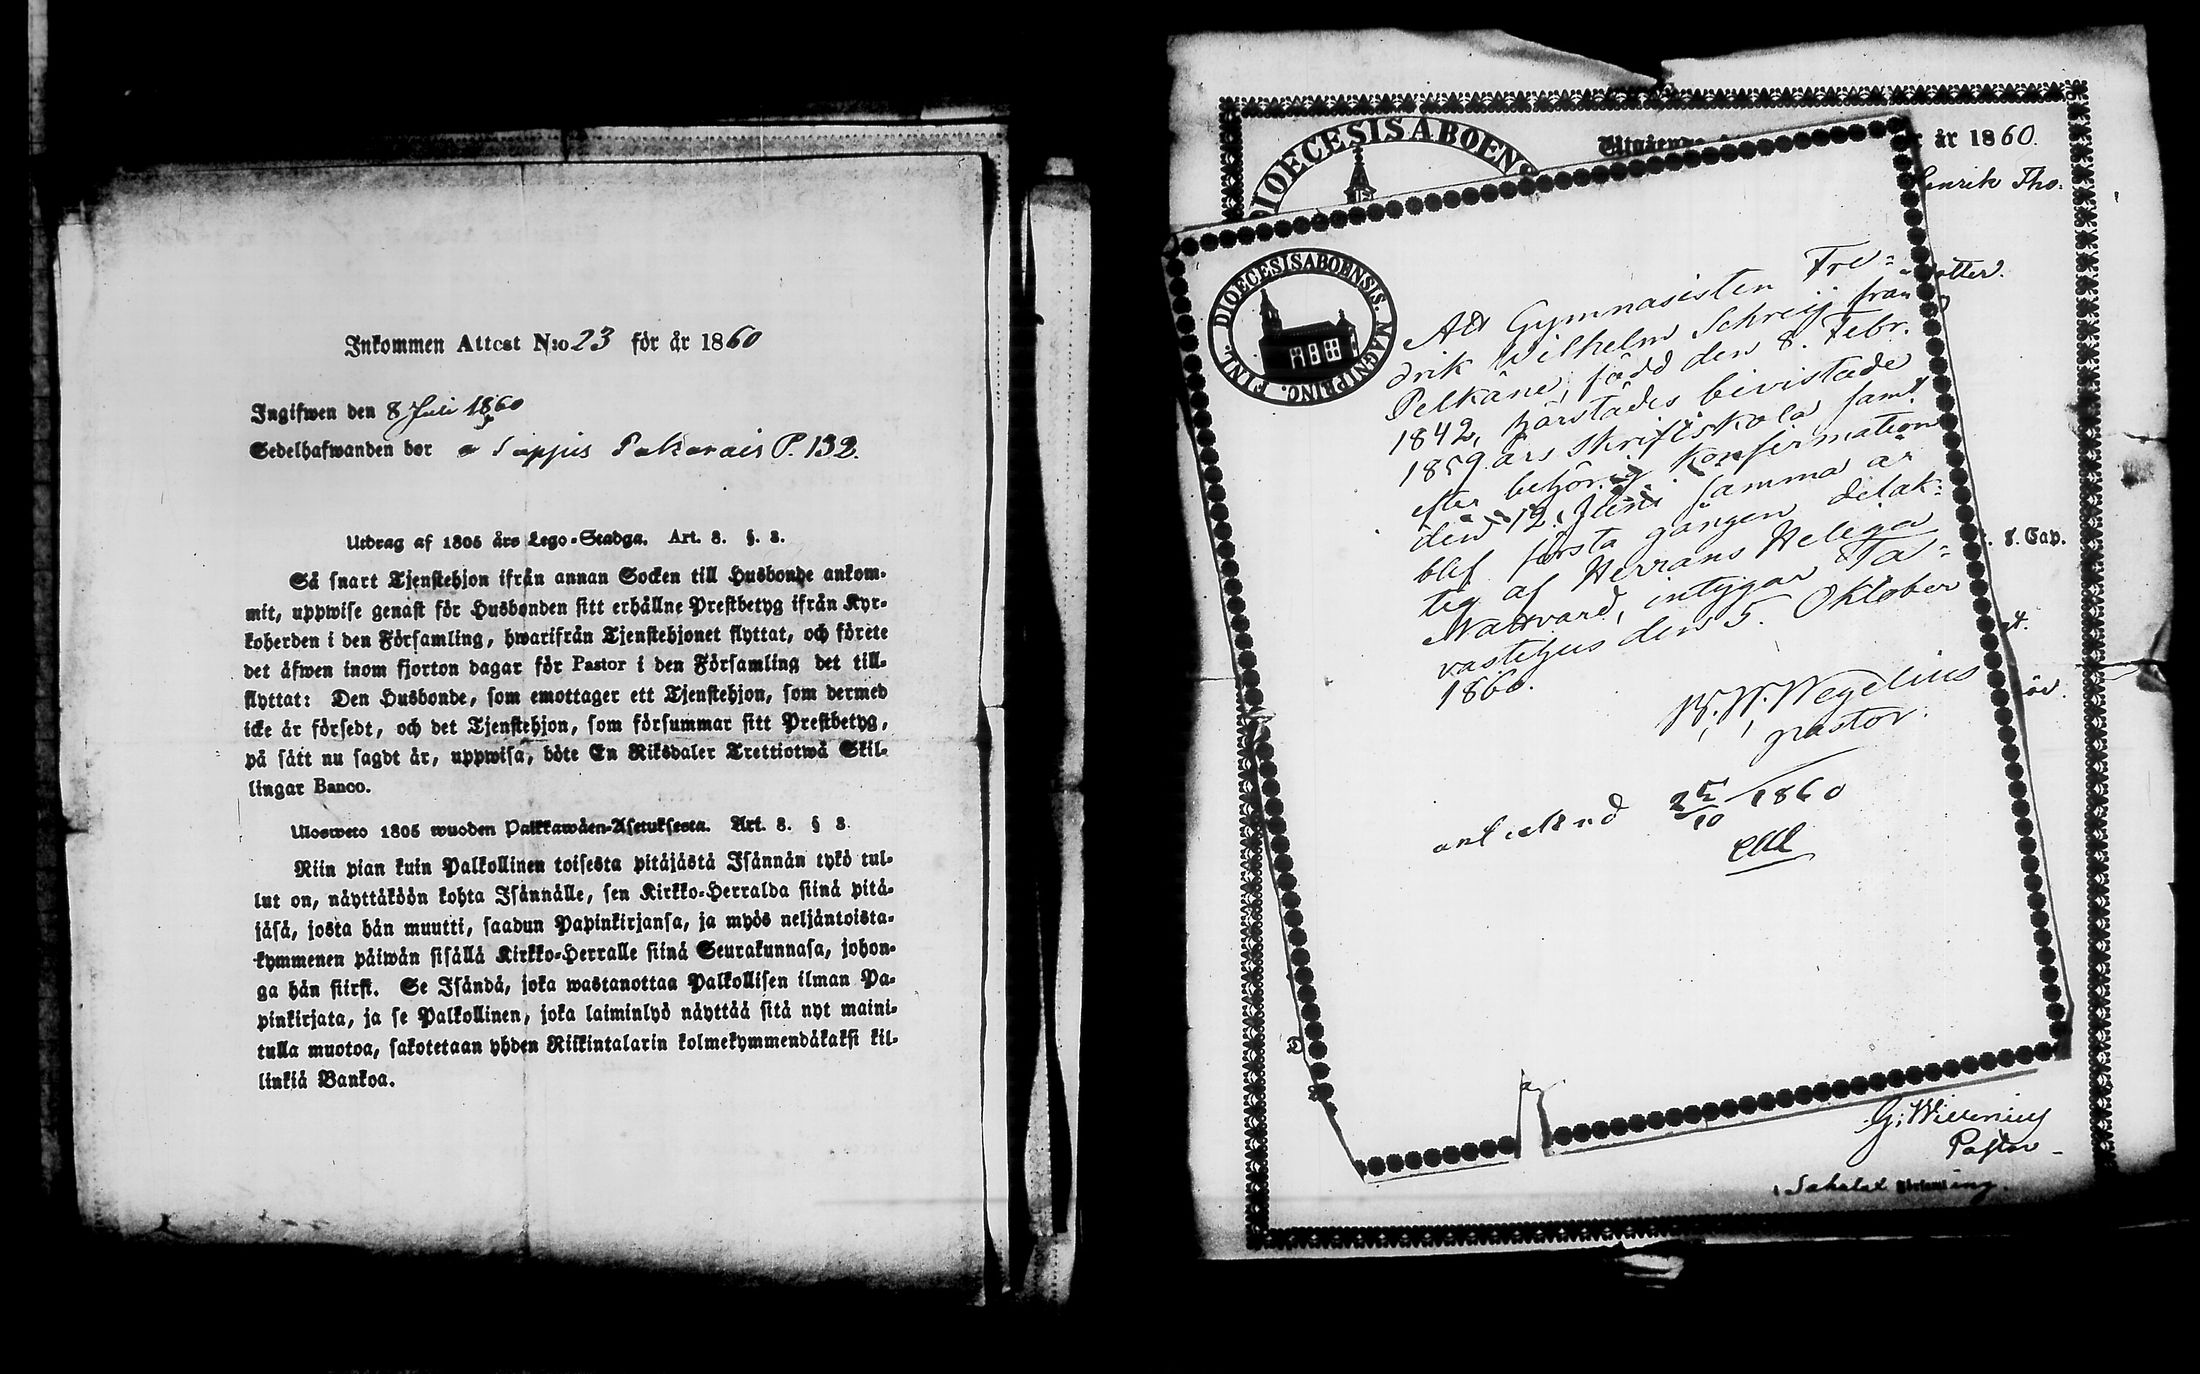 Inkommen Attest N:o 23 för år 1860
Ingifwen den 8 Juli 1860
Sedelhafwanden bor Sappus Pakarais P. 132.
Utdrag af 1805 års Lego-Stadga. Art. 8. §. 8.
Så snart Tjenstehjon ifrån annan Socken till Husbonde ankom-
mit, uppwise genast för Husbonden sitt erhållne Prestbetyg ifrån Kyr-
koherden i den Församling, hwarifrån Tjenstehjonet flyttat, och förete
det äfwen inom fjorton dagar för Pastor i den Församling det till-
flyttat: Den Husbonde, som emottager ett Tjenstehjon, som dermed
icke är försedt, och det Tjenstehjon, som försummar sitt Prestbetyg,
på sätt nu sagdt är, uppwisa, böte En Riksdaler Trettiotwå Skil-
lingar Banco.
Ulosweto 1805 wuoden Palkkawäen-Asetuksesta. Art. 8. § 8.
Niin pian kuin Palkollinen toisesta pitäjästä Isännän tykö tul-
lut on, näyttäköön kohta Isännälle, sen Kirkko-Herralda siinä pitä-
jäsä, josta hän muutti, saadun Papinkirjansa, ja myös neljäntoista-
kymmenen päiwän sisällä Kirkko-Herralle siinä Seurakunnasa, johon-
ga hän siirsi. Se Isändä, joka wastanottaa Palkollisen ilman Pa-
pinkirjata, ja se Palkollinen, joka laiminlyö näyttää sitä nyt maini-
tulla muotoa, sakotetaan yhden Riikintalarin kolmekymmendäkaksi kil-
linkiä Bankoa.
DIOECESIS ABOENS
Utgående
år 1860.
Henrik Tho-
DIOECESIS ABOENSIS. MAGNI PRINC. FINL.
Att Gymnasisten Fre=
drik Wilhelm Schreij från
Pelkäne, född den 8. Febr.
1842, härstädes bivistade
1859 års Skriftskola samt
efter behörig Konfirmation
den 12. Juni samma år
blef första gången delak=
tig af Herrans Heliga
Nattvard, intygar Ta=
vastehus den 5. Oktober
1860.
W. W. Wegelius
pastor.
antecknad 25/10 1860
8. Cap.
G. Wirenius
Pastor
i Sahalax Församling.